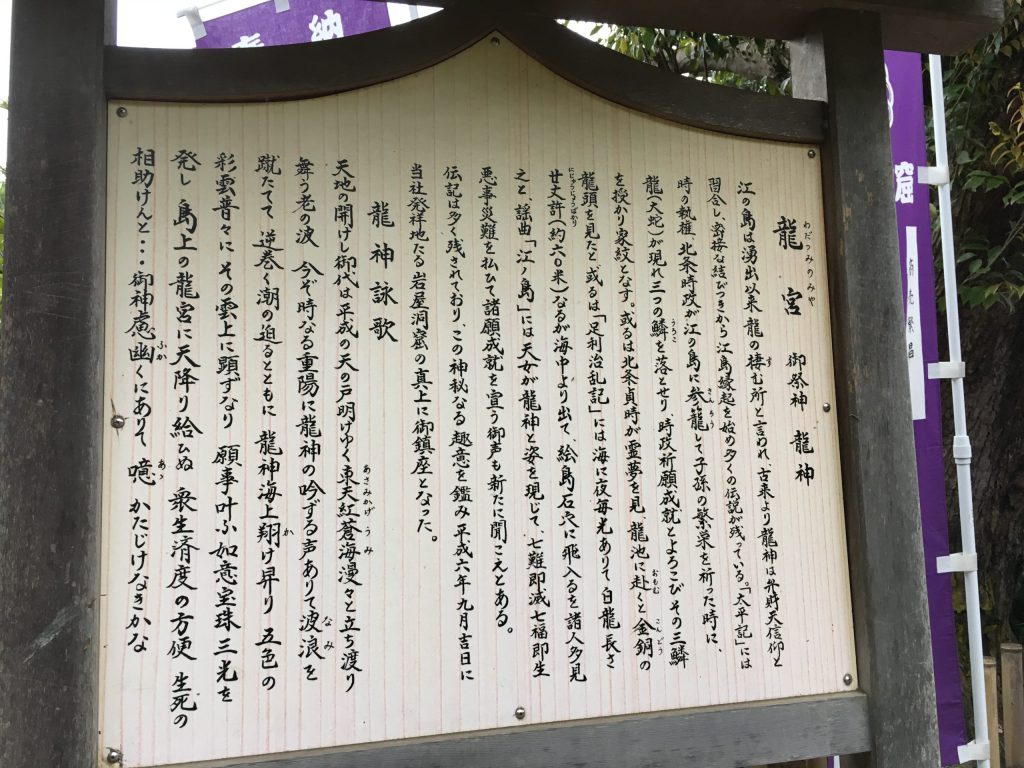 龍宮 御祭神 龍神
わだつみのみや
江の島は湧出以来龍の棲む所と言われ、古来より龍神は弁財天信仰と
す
習合し、密接な結びつきから江島縁起を始め多くの伝説が残っている。「太平記」には
時の執権、北条時政が江の島に参籠して子孫の繁栄を祈った時に、
さんろう
龍(大蛇)が現れ三つの鱗を落とせり、時政祈願成就とよろこびその三鱗
うろこ
を授かり家紋となす。或るは北条貞時が霊夢を見、龍池に赴くと金銅の
おもむ こんどう
龍頭を見たと或るは「足利治乱記」には海に夜毎光ありて白龍長さ
廿丈許(約六〇米)なるが海中より出て、絵島石穴に飛入るを諸人多見
にじゅうじょうばかり
之と、謡曲「江ノ島」には天女が龍神と姿を現じて、七難即滅七福即生
悪事災難を払ひて諸願成就を宣う御声も新たに聞こえとある。
伝記は多く残されており、この神秘なる趣意を鑑み平成六年九月吉日に
当社発祥地たる岩屋洞窟の真上に御鎮座となった。
龍神詠歌
天地の開けし御代は平成の天の戸明けゆく東天紅蒼海漫々と立ち渡り
あさみかげ うみ
舞う老の波 今ぞ時なる重陽に龍神の吟ずる声ありて波浪を
なみ
蹴たてて 逆巻く潮の迫るとともに 龍神海上翔け昇り 五色の
か
彩雲普々に その雲上に顕ずなり 願事叶ふ如意宝珠 三光を
発し 島上の龍宮に天降り給ひぬ 衆生済度の方便 生死の
相助けんと・・・御神慮幽くにありて 噫 かたじけなきかな
ふか あゝ
奉 納
窟
商売繁昌